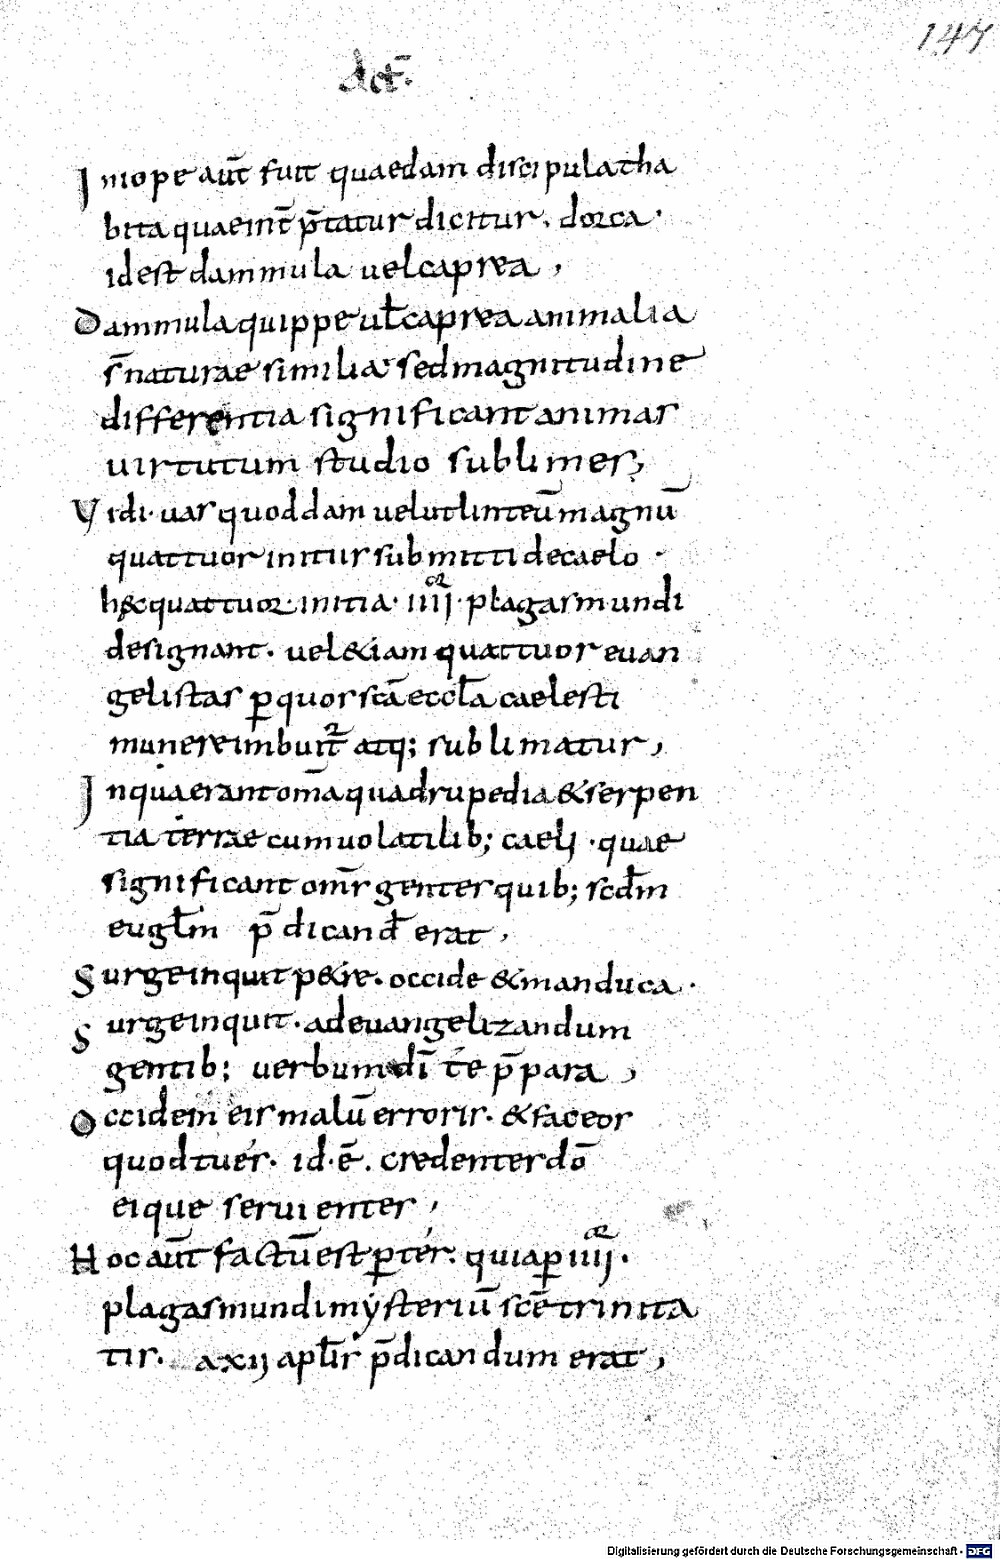 147
act̄.
Inioppe aut̄ fuit quaedam discipula tha
bita quae int̄ p̄tatur dicitur. dorca·
id est dammula uel caprea,
Dammula quippe ul̄ caprea animalia
s̄ naturae similia sed magnitudine
differentia significant animas
uirtutum studio sublimes;
Vidi· uas quoddam uelut linteū magnū
quattuor initur submitti de caelo ·
h&c quattuor· initia· iiiior· plagas mundi
designant. uel &iam quattuor euan
gelistas p̱ quos sc̄a eccl̄a caelesti
munere imbuit̄ur atq; sublimatur,
In qua erant om̄a quadrupedia & serpen
tia terrae cum uolatilib; caeli ·quae
significant om̄s gentes quib; scd̄m
eugl̄m p̄dicand̄ erat,
Surge inquit p&re. occide & manduca·
Surge inquit· ad euangelizandum
gentib; uerbum dī te p̄para,
Occidem eis malū erroris. & faceos
quod tu es. id·ē. credentes dō
eique seruientes,
Hoc aut̄ factū est p̱ ter. quia p̱ iiiior·
plagas mundi mẏsteriū sc̄e trinita
tis. a xij apl̄is p̄dicandum erat,
Digitalisierung gefördert durch die Deutsche Forschungsgemeinschaft - DFG